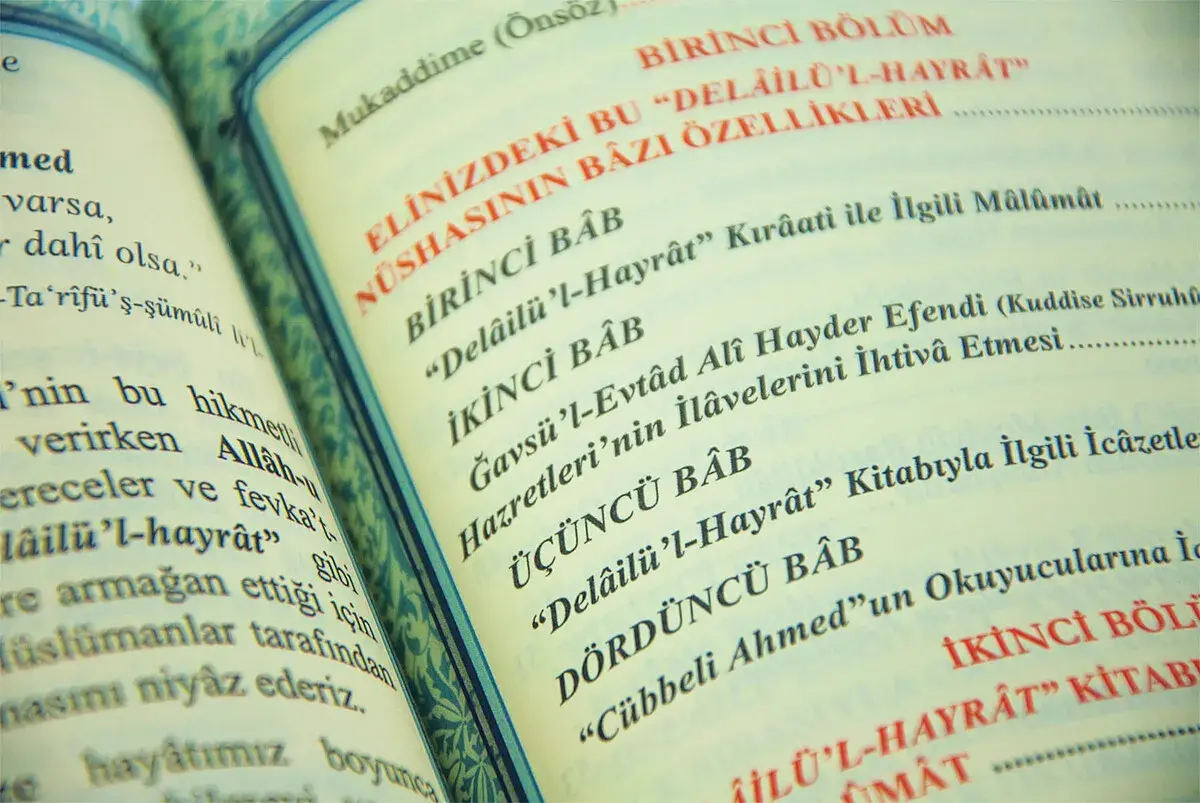 e
med
varsa,
r dahî olsa.”
-Ta‘rîfü’ş-şümûlî li’l-
i’nin bu hikmetli
verirken Allâh-u
ereceler ve fevka’t-
lâilü’l-hayrât” gibi
re armağan ettiği için
üslümanlar tarafından
masını niyâz ederiz.
hayâtımız boyunca
Mukaddime (Önsöz)
BİRİNCİ BÖLÜM
ELİNİZDEKİ BU “DELÂİLÜ’L-HAYRÂT”
NÜSHASININ BÂZI ÖZELLİKLERİ
BİRİNCİ BÂB
“Delâilü’l-Hayrât” Kırâati ile İlgili Mâlûmât
İKİNCİ BÂB
Ğavsü’l-Evtâd Alî Hayder Efendi (Kuddise Sirruhû
Hazretleri’nin İlâvelerini İhtivâ Etmesi
ÜÇÜNCÜ BÂB
“Delâilü’l-Hayrât” Kitabıyla İlgili İcâzetle
DÖRDÜNCÜ BÂB
“Cübbeli Ahmed”un Okuyucularına İc
İKİNCİ BÖLÜ
ÂİLÜ’L-HAYRÂT” KİTABI
ÛMÂT